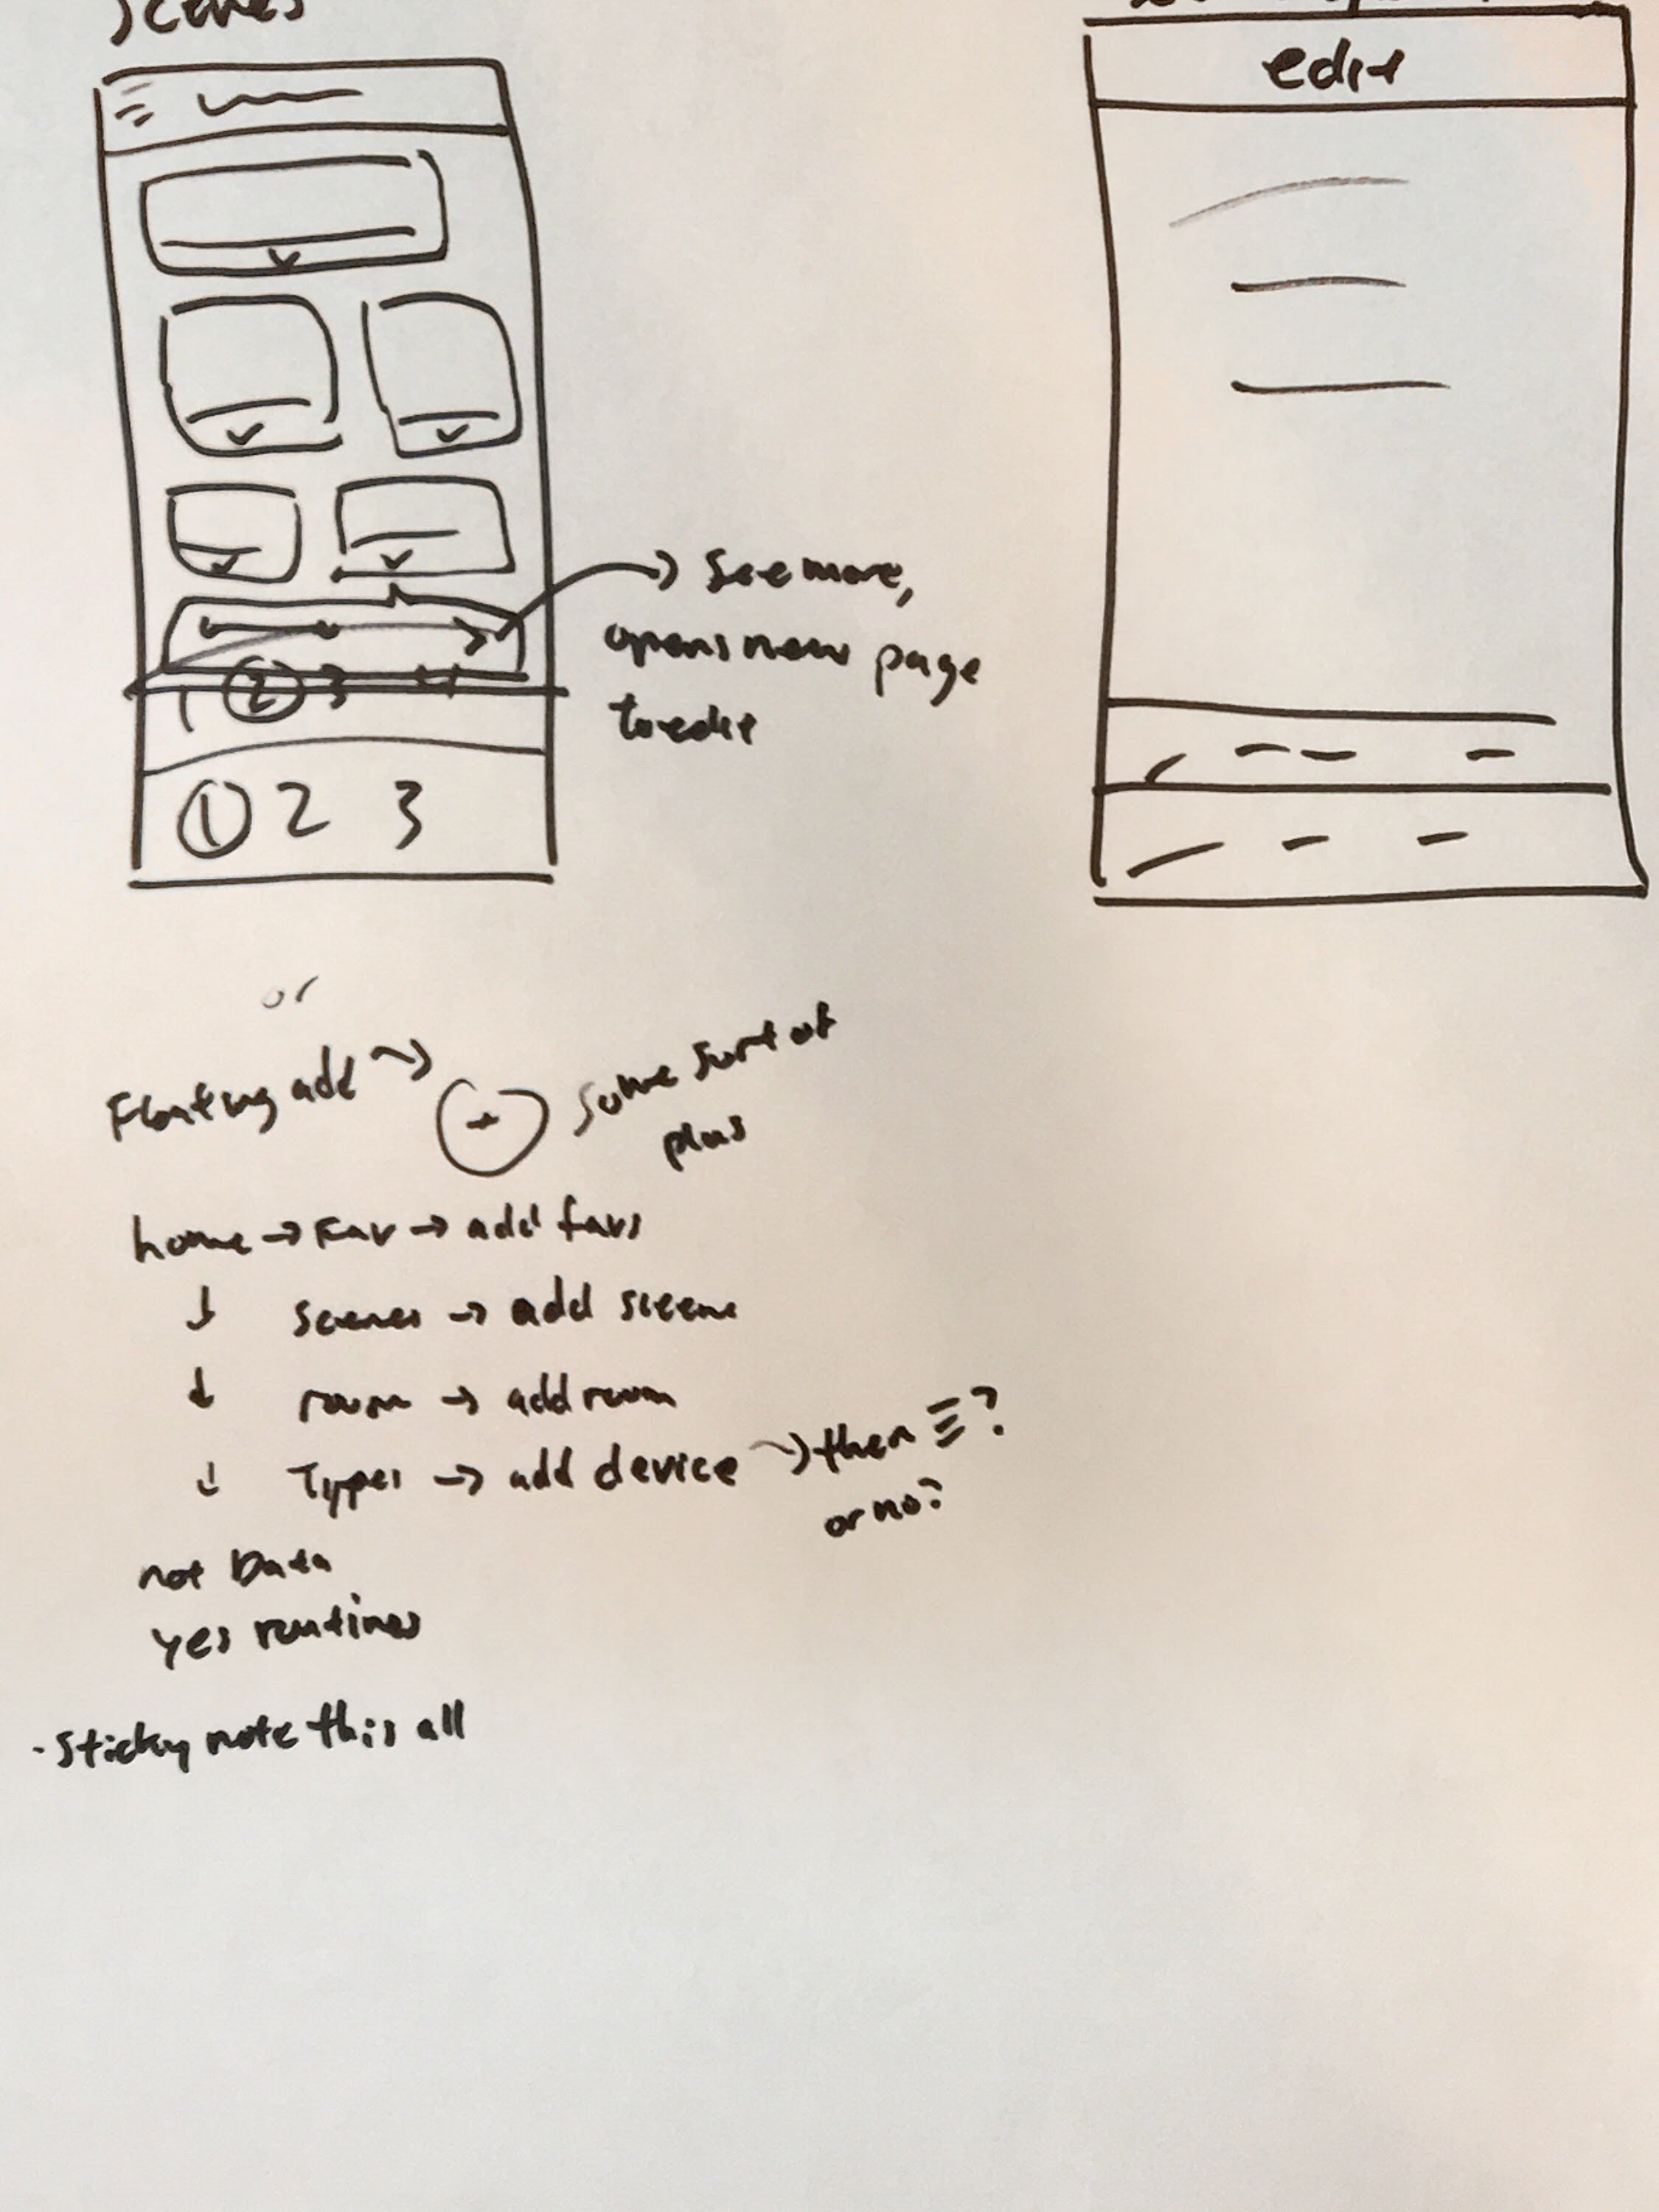 Scenes
edit
See more,
opens new page
to edit
1 2 3 4
1 2 3
or
Floating add → + some sort of
plus
home → Fav → add favs
↓ scenes → add sceene
↓ room → add room
↓ Types → add device → then ≡?
or no?
not Data
yes routines
- sticky note this all